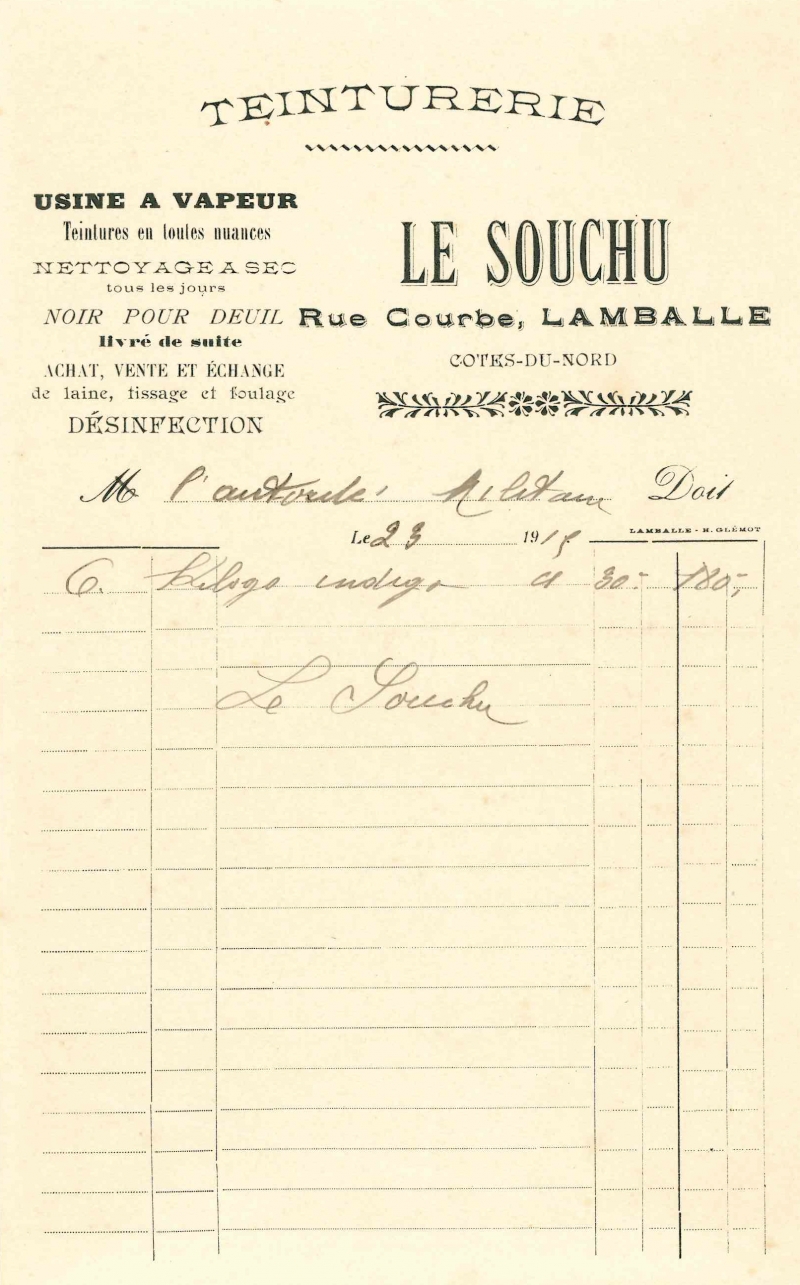 TEINTURERIE
USINE A VAPEUR
Teintures en toutes nuances
NETTOYAGE A SEC
tous les jours
NOIR POUR DEUIL
livré de suite
ACHAT, VENTE ET ÉCHANGE
de laine, tissage et foulage
DÉSINFECTION
LE SOUCHU
Rue Courbe, LAMBALLE
COTES-DU-NORD
M l'autorité Militaire Doit
LAMBALLE - H. GLÉMOT
Le 23 1915
6. Kilogs indigo a 30 - 180 -
Le Souchu